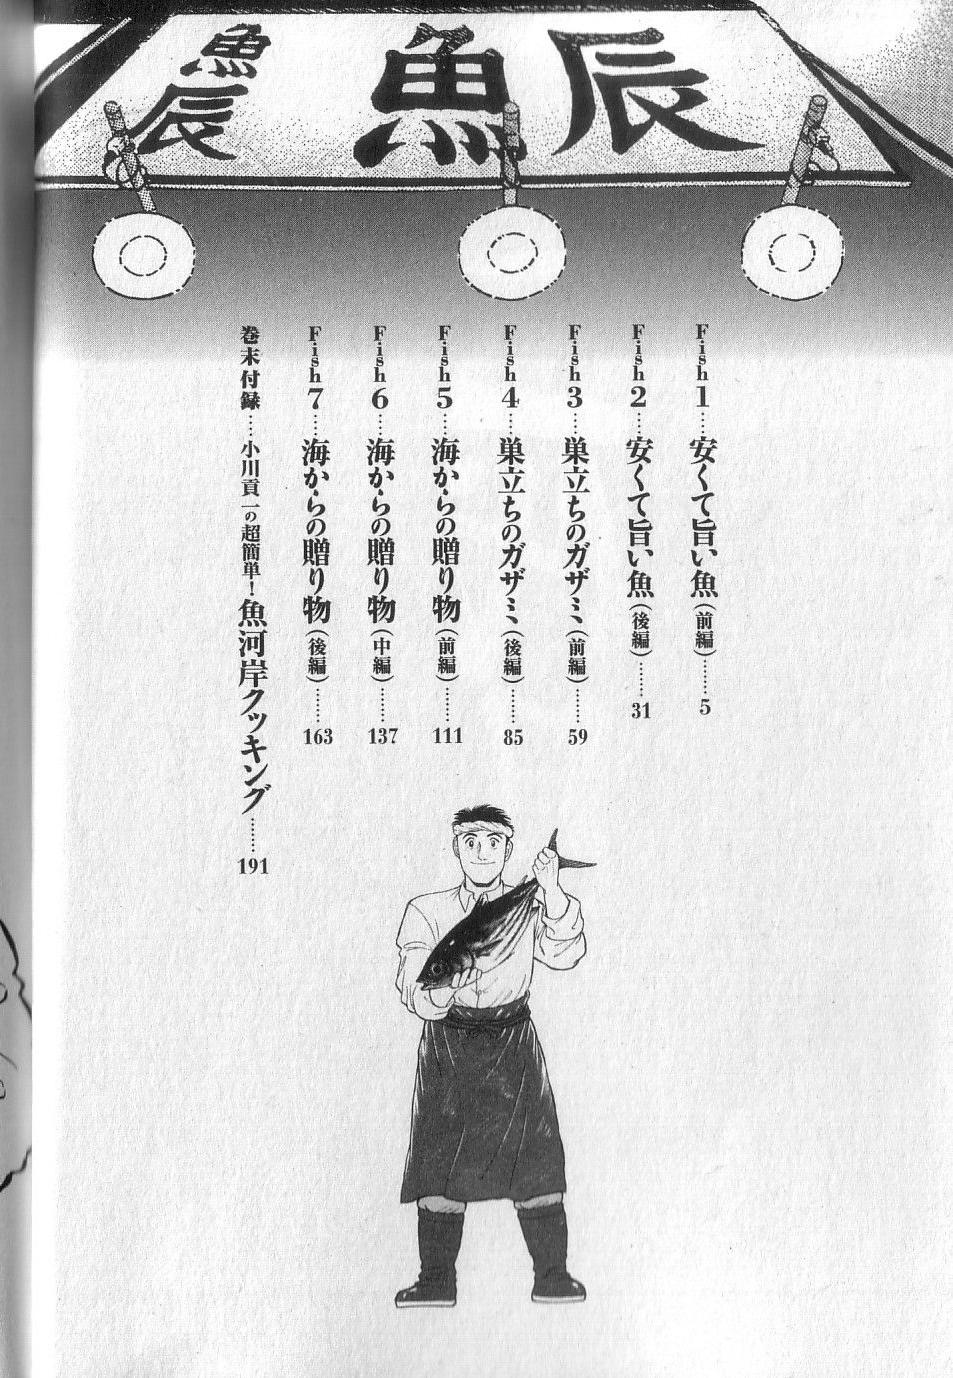 魚辰
魚辰
Fish1……安くて旨い魚(前編)………5
Fish2……安くて旨い魚(後編)………31
Fish3……巣立ちのガザミ(前編)………59
Fish4……巣立ちのガザミ(後編)………85
Fish5……海からの贈り物(前編)………111
Fish6……海からの贈り物(中編)………137
Fish7……海からの贈り物(後編)………163
巻末付録……小川貢一の超簡単!魚河岸クッキング………191